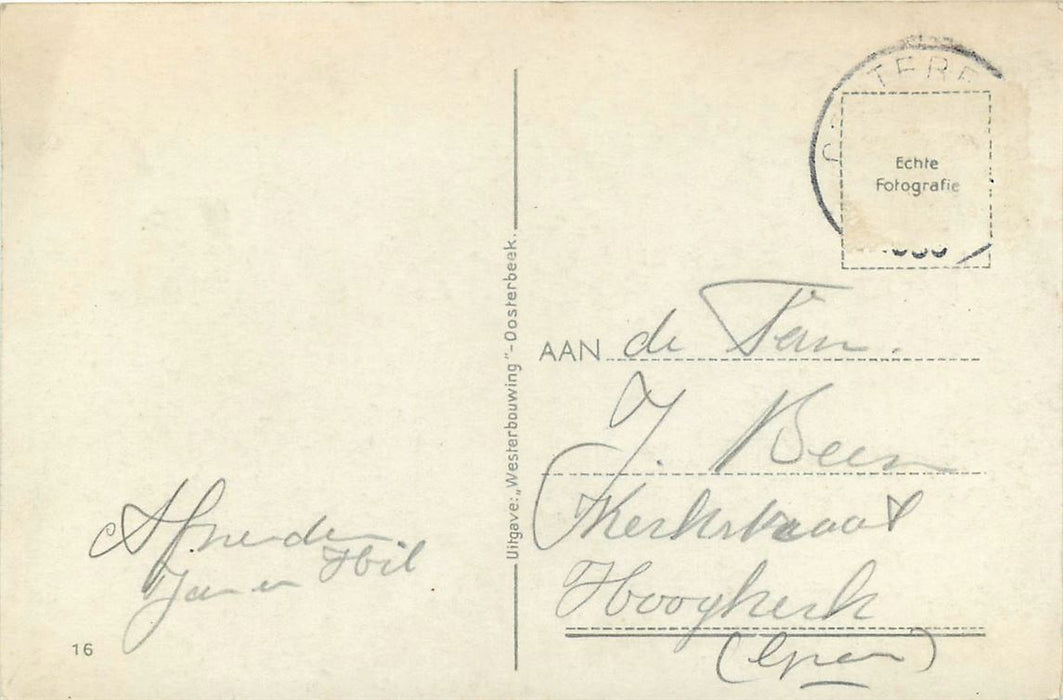 Echte
Fotografie
AAN de Fam.
J. Been
Kerkstraat
Hoogkerk
(Gron)
Uitgave: „Westerbouwing”-Oosterbeek.
Jan en
16